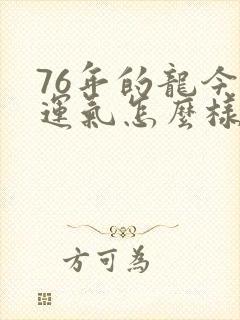 76年的龍今
運氣怎麼樣
方可為